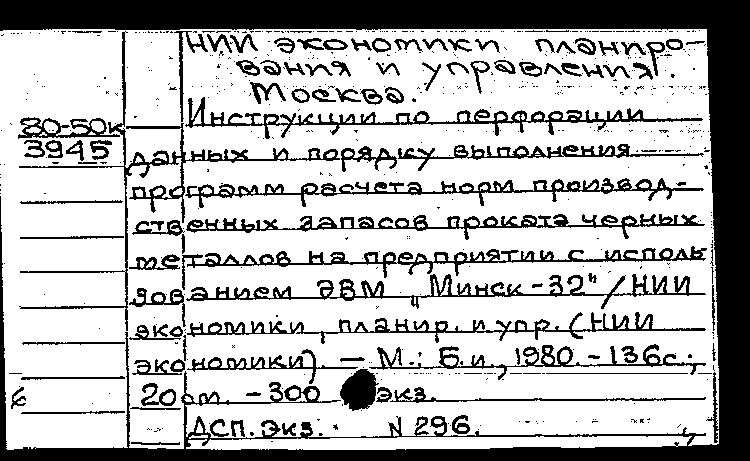 НИИ экономики планиро-
вания и управления.
Москва.
Инструкции по перфорации
80-50к
3945
данных и порядку выполнения
программ расчета норм производ-
ственных запасов проката черных
металлов на предприятии с исполь
зованием ЭВМ „Минск-32"/НИИ
экономики, планир. и упр. (НИИ
экономики). — М.: Б.и., 1980. - 136с.;
20см. - 300 экз.
ДСП. Экз. N 296.